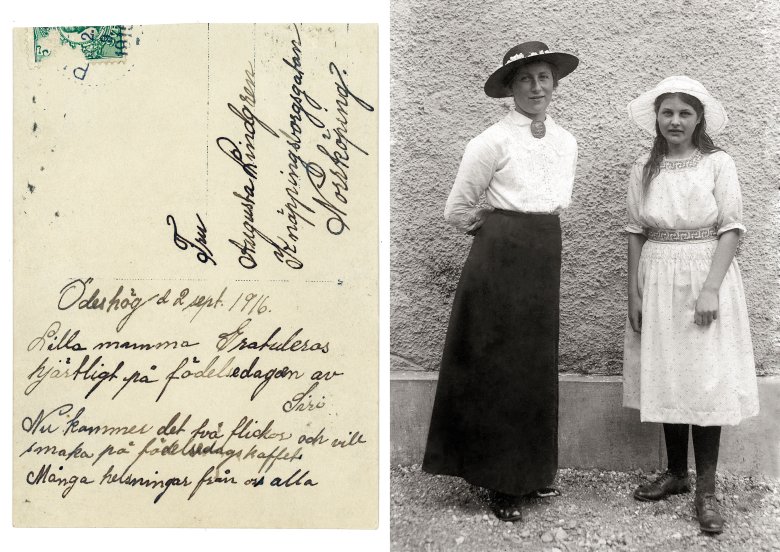 5
2. 9
Fru
Augusta Lindgren
Knäppingsborgsgatan
Norrköping?
Ödeshög d 2 sept. 1916.
Lilla mamma Gratuleras
hjärtligt på födelsedagen av
Siri
Nu kommer det två flickor och vill
smaka på födelsedagskaffet
Många helsningar från oss alla